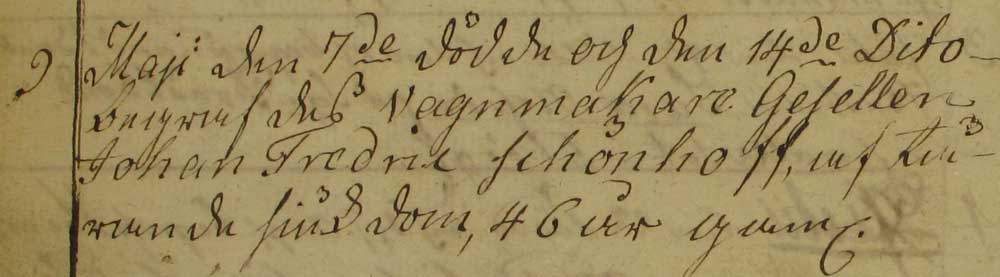 9 Maji den 7de dödde och den 14de Dito
begrafdes Vagnmakare Gesellen
Johan Fredric Schönhoff, af Tä-
rande siukdom, 46 år gam̄l.